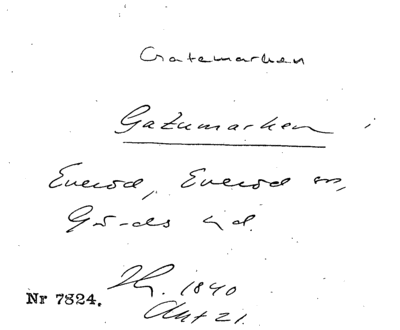 Gatemarken
Gatumarken i
Everöd, Everöd sn,
Gärds hd.
Hy. 1840
Akt 21.
Nr 7824.